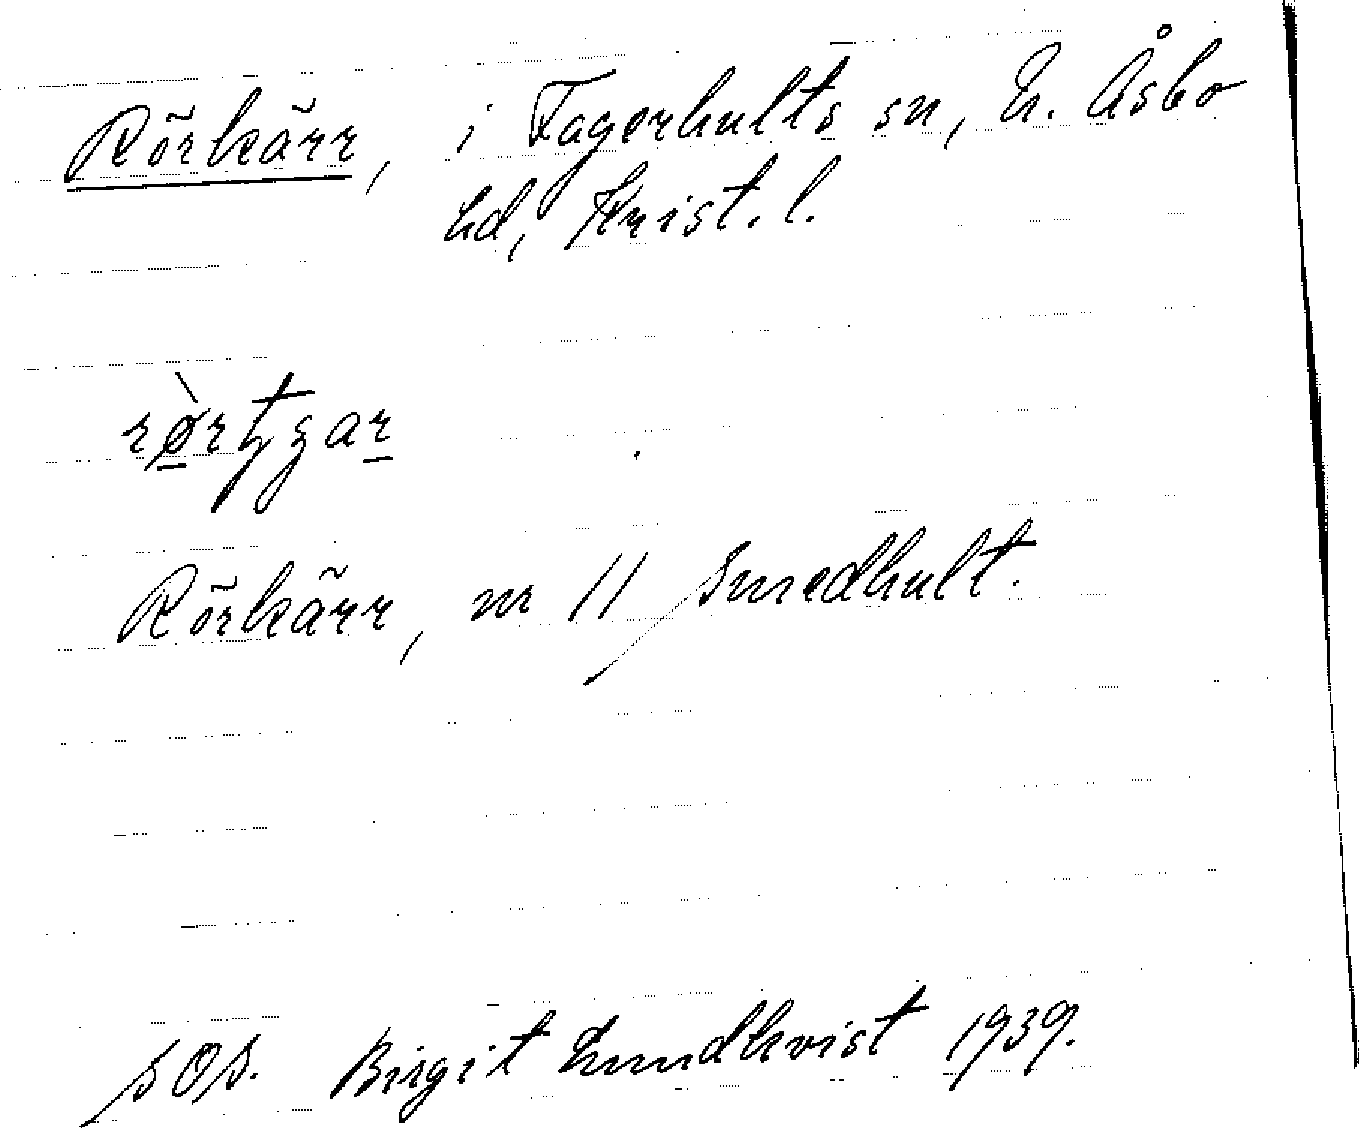 Rörkärr, i Fagerhults sn, N. Åsbo
hd, Krist. l.
Rörkärr, nr 11 Smedhult.
SOS. Birgit Lundkvist 1939.